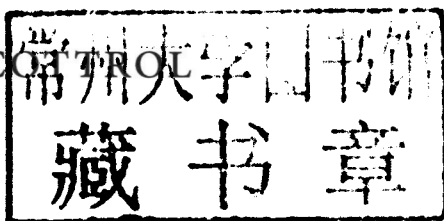 常州大学图书馆
COTTROL
藏书章